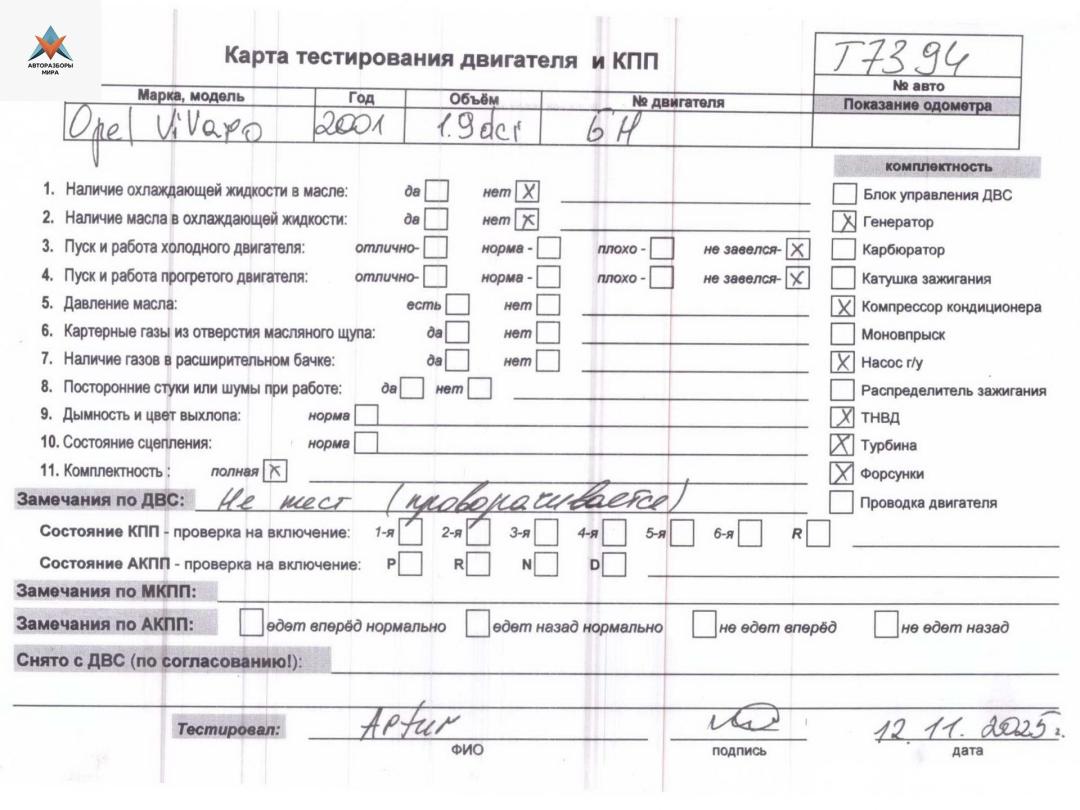 АВТОРАЗБОРЫ
МИРА
Карта тестирования двигателя и КПП
T7394
№ авто
Марка, модель Год Объём № двигателя Показание одометра
Opel ViVaro 2001 1.9dci БН
комплектность
1. Наличие охлаждающей жидкости в масле: да нет X
Блок управления ДВС
2. Наличие масла в охлаждающей жидкости: да нет X
X Генератор
3. Пуск и работа холодного двигателя: отлично- норма - плохо - не завелся- X
Карбюратор
4. Пуск и работа прогретого двигателя: отлично- норма - плохо - не завелся- X
Катушка зажигания
5. Давление масла: есть нет
X Компрессор кондиционера
6. Картерные газы из отверстия масляного щупа: да нет
Моновпрыск
7. Наличие газов в расширительном бачке: да нет
X Насос г/у
8. Посторонние стуки или шумы при работе: да нет
Распределитель зажигания
9. Дымность и цвет выхлопа: норма
X ТНВД
10. Состояние сцепления: норма
X Турбина
11. Комплектность : полная X
X Форсунки
Замечания по ДВС: Не тест (проворачивается)
Проводка двигателя
Состояние КПП - проверка на включение: 1-я 2-я 3-я 4-я 5-я 6-я R
Состояние АКПП - проверка на включение: P R N D
Замечания по МКПП:
Замечания по АКПП: едет вперёд нормально едет назад нормально не едет вперёд не едет назад
Снято с ДВС (по согласованию!):
Тестировал: Artur 12.11.2025г.
ФИО подпись дата